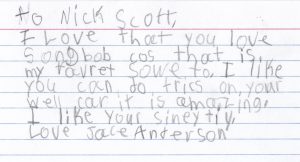 to Nick Scott,
I Love that you love
Songbob cos that is
my favret sowe to. I like
you can do trics on your
weel car it is amazing.
I like your sineytiv
Love Jace Anderson